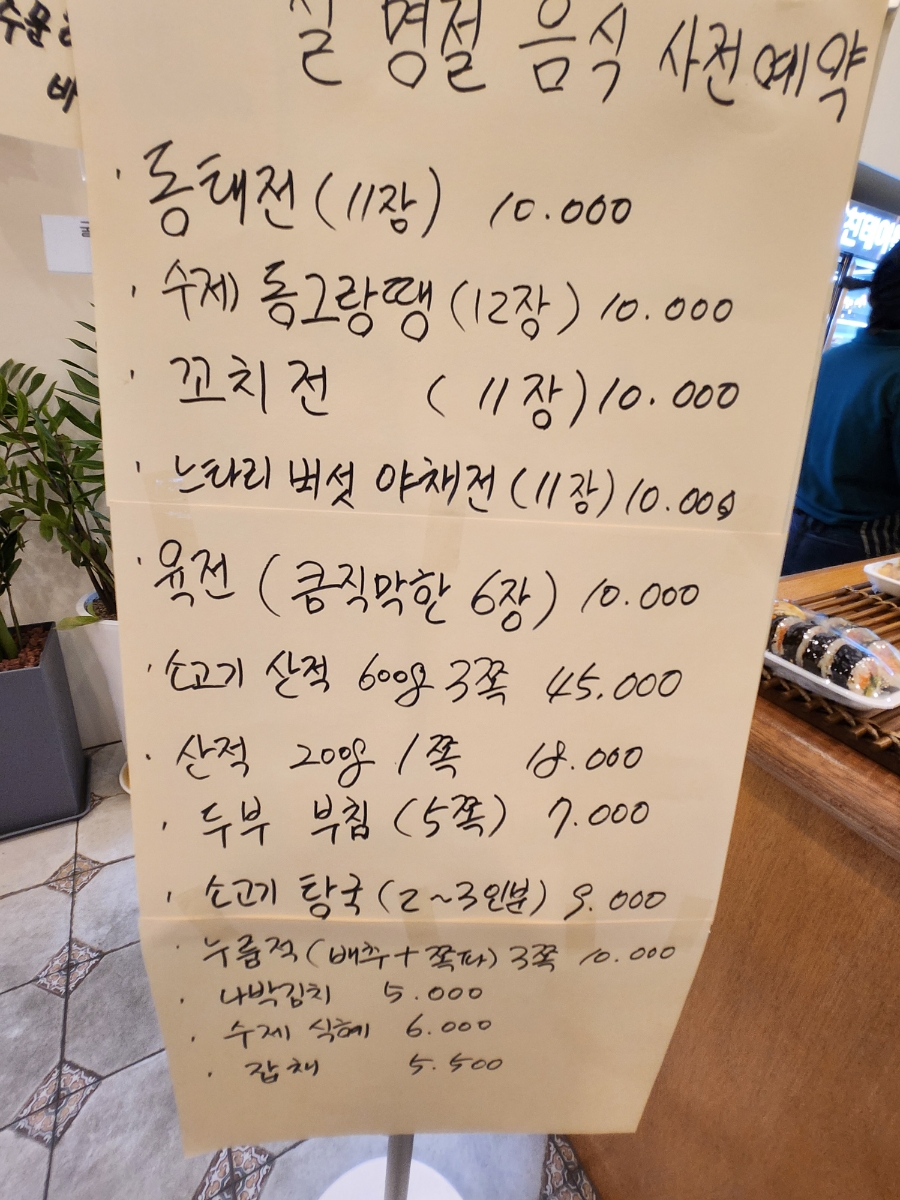 수문
바
설 명절 음식 사전예약
· 동태전 (11장) 10.000
· 수제 동그랑땡 (12장) 10.000
· 꼬치전 (11장) 10.000
· 느타리 버섯 야채전 (11장) 10.000
· 육전 (큼직막한 6장) 10.000
· 소고기 산적 600g 3쪽 45.000
· 산적 200g 1쪽 18.000
· 두부 부침 (5쪽) 7.000
· 소고기 탕국 (2~3인분) 9.000
· 누름적 (배추+쪽파) 3쪽 10.000
· 나박김치 5.000
· 수제 식혜 6.000
· 잡채 5.500